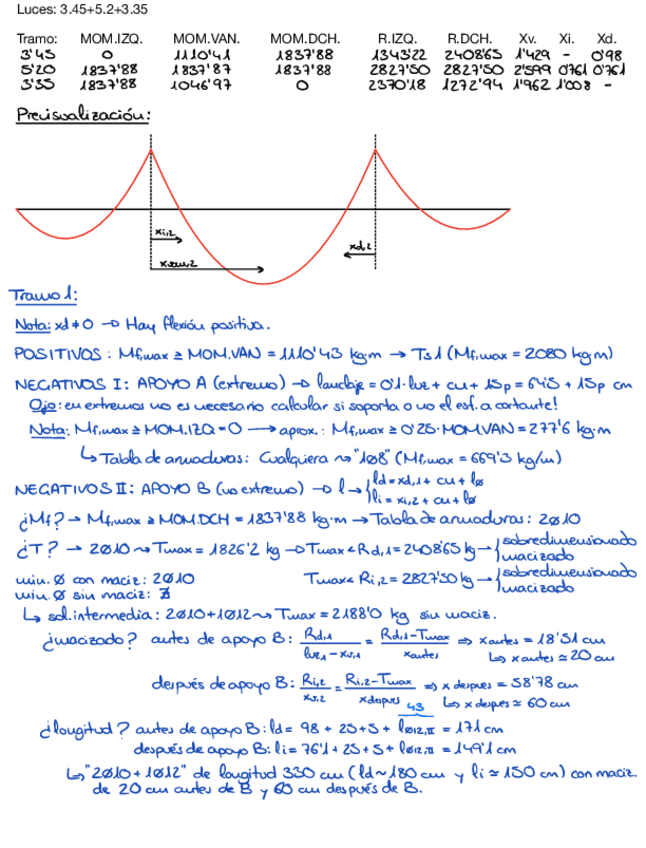 Luces: 3.45+5.2+3.35
Tramo: MOM.IZQ. MOM.VAN. MOM.DCH. R.IZQ. R.DCH. Xv. Xi. Xd.
3'45 0 1110'41 1837'88 1343'22 2408'65 1'429 - 0'98
5'20 1837'88 1837'87 1837'88 2827'50 2827'50 2'599 0'761 0'761
3'35 1837'88 1046'97 0 2370'18 1272'94 1'962 1'008 -
Previsualización:
xi,2
xd,2
xvan,2
Tramo 1:
Nota: xd ≠ 0 → Hay flexión positiva.
POSITIVOS: Mf,max ≥ MOM.VAN = 1110'43 kg·m → Ts1 (Mf,max = 2080 kg·m)
NEGATIVOS I: APOYO A (extremo) → l anclaje = 0'1·luz + cu + 15p = 64'5 + 15p cm
Ojo: en extremos no es necesario calcular si soporta o no el esf. a cortante!
Nota: Mf,max ≥ MOM.IZQ = 0 → aprox.: Mf,max ≥ 0'25·MOM.VAN = 277'6 kg·m
↳ Tabla de armaduras: Cualquiera ~> "1Ø8" (Mf,max = 669'3 kg/m)
NEGATIVOS II: APOYO B (no extremo) → l → { ld = xd,1 + cu + lø
li = xi,2 + cu + lø
¿Mf? → Mf,max ≥ MOM.DCH = 1837'88 kg·m → Tabla de armaduras: 2Ø10
¿T? → 2Ø10 ~> Tmax = 1826'2 kg → Tmax < Rd,1 = 2408'65 kg → { sobredimensionado
macizado
min. Ø con maciz: 2Ø10 Tmax < Ri,2 = 2827'50 kg → { sobredimensionado
macizado
min. Ø sin maciz: ∄
↳ sol. intermedia: 2Ø10+1Ø12 ~> Tmax = 2188'0 kg sin maciz.
¿macizado? antes de apoyo B: Rd,1 / luz1 - xv,1 = Rd,1 - Tmax / xantes ⇒ xantes = 18'51 cm
↳ xantes ≃ 20 cm
después de apoyo B: Ri,2 / xv,2 = Ri,2 - Tmax / xdespues ⇒ x despues = 58'78 cm
↳ x despues ≃ 60 cm
43
¿longitud? antes de apoyo B: ld = 98 + 25 + 5 + lØ12,II = 171 cm
después de apoyo B: li = 76'1 + 25 + 5 + lØ12,II = 149'1 cm
↳ "2Ø10 + 1Ø12" de longitud 330 cm (ld ~ 180 cm y li ≃ 150 cm) con maciz.
de 20 cm antes de B y 60 cm después de B.